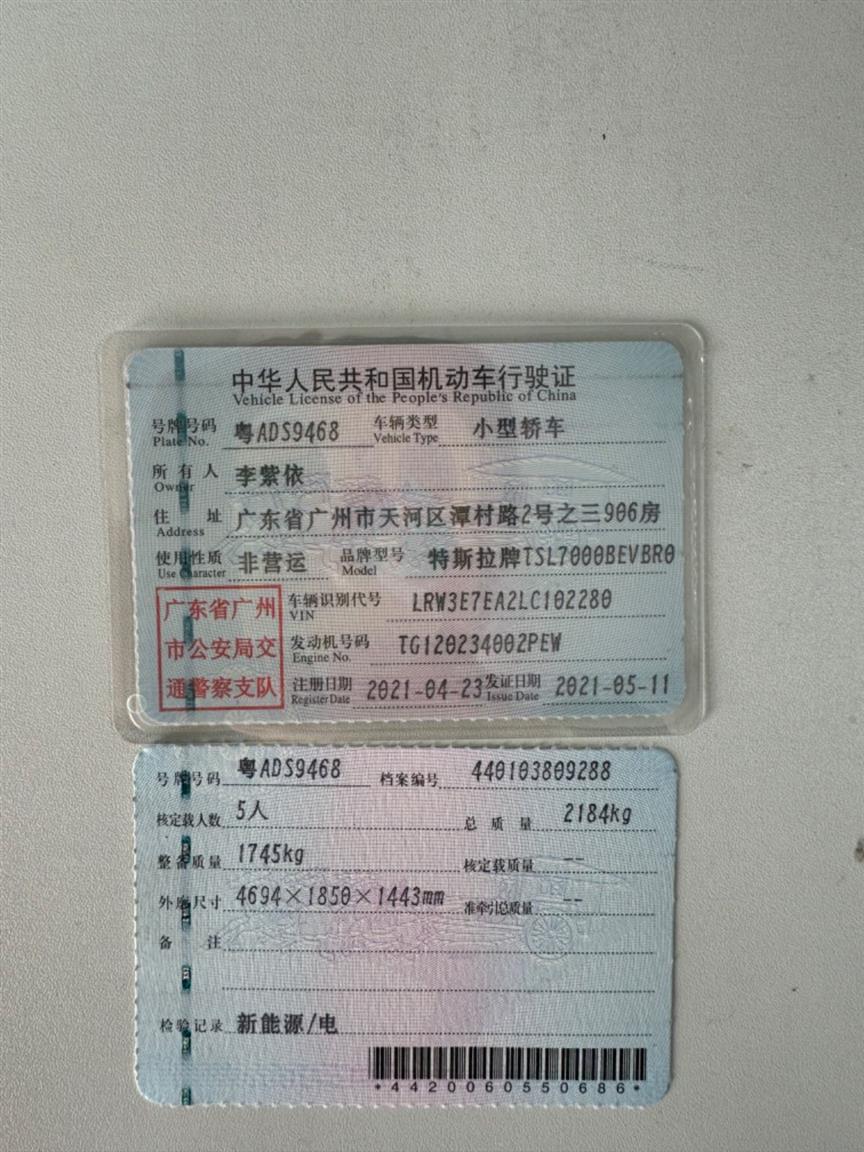 中华人民共和国机动车行驶证
Vehicle License of the People's Republic of China
号牌号码 粤ADS9468 车辆类型 小型轿车
Plate No. Vehicle Type
所有人 李紫依
Owner
住址 广东省广州市天河区潭村路2号之三906房
Address
使用性质 非营运 品牌型号 特斯拉牌TSL7000BEVBR0
Use Character Model
广东省广州
市公安局交
通警察支队
车辆识别代号 LRW3E7EA2LC102280
VIN
发动机号码 TG120234002PEW
Engine No.
注册日期 2021-04-23 发证日期 2021-05-11
Register Date Issue Date
号牌号码 粤ADS9468 档案编号 440103809288
核定载人数 5人 总质量 2184kg
整备质量 1745kg 核定载质量 --
外廓尺寸 4694×1850×1443mm 准牵引总质量 --
备注
检验记录 新能源/电
*4420060550686*